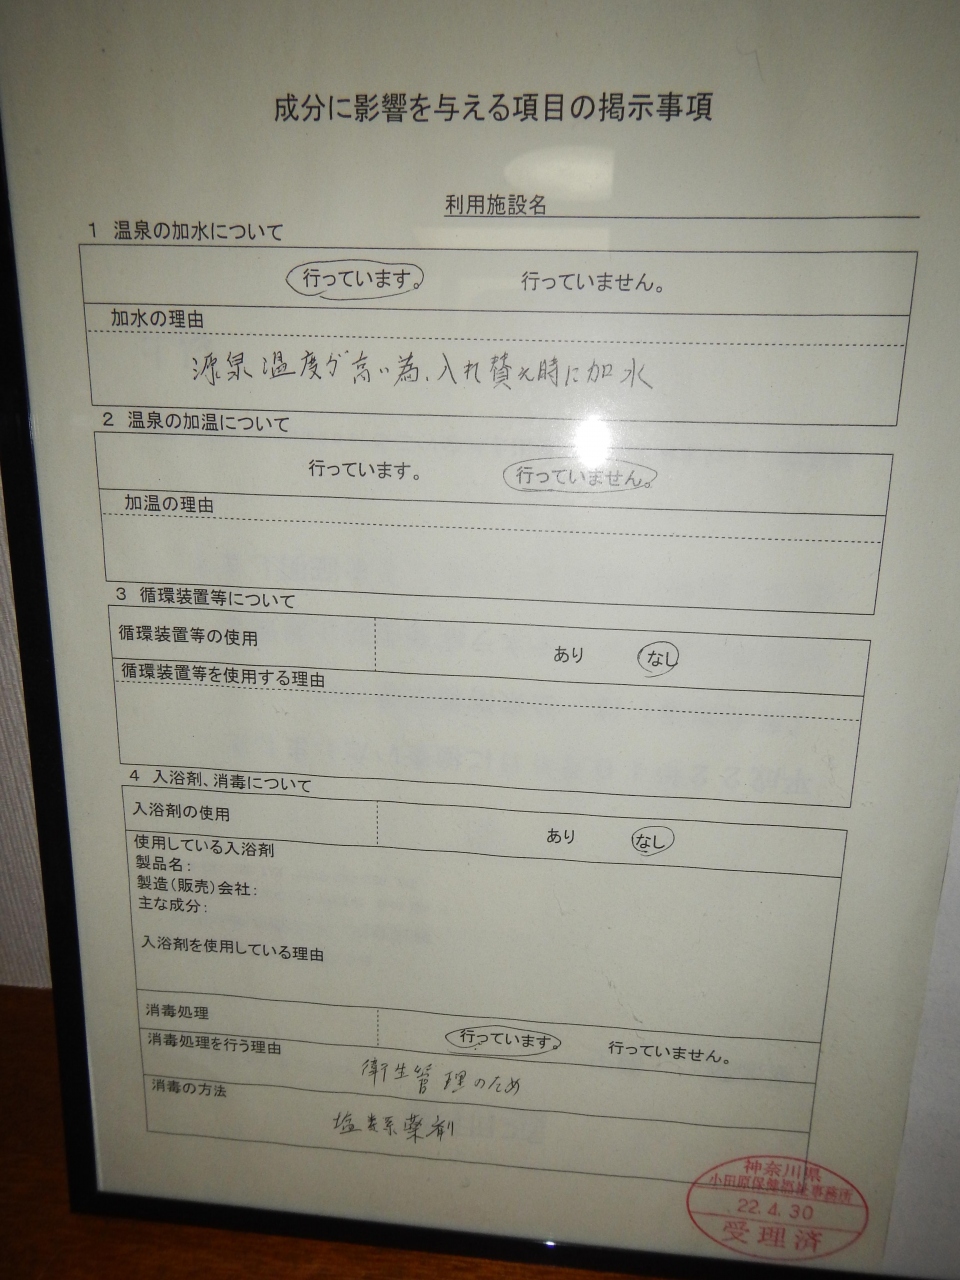 成分に影響を与える項目の掲示事項
利用施設名
1 温泉の加水について
行っています。 行っていません。
加水の理由
源泉温度が高い為、入れ替え時に加水
2 温泉の加温について
行っています。 行っていません。
加温の理由
3 循環装置等について
循環装置等の使用 あり なし
循環装置等を使用する理由
4 入浴剤、消毒について
入浴剤の使用 あり なし
使用している入浴剤
製品名:
製造(販売)会社:
主な成分:
入浴剤を使用している理由
消毒処理 行っています。 行っていません。
消毒処理を行う理由
衛生管理のため
消毒の方法
塩素系薬剤
神奈川県
小田原保健福祉事務所
22.4.30
受理済